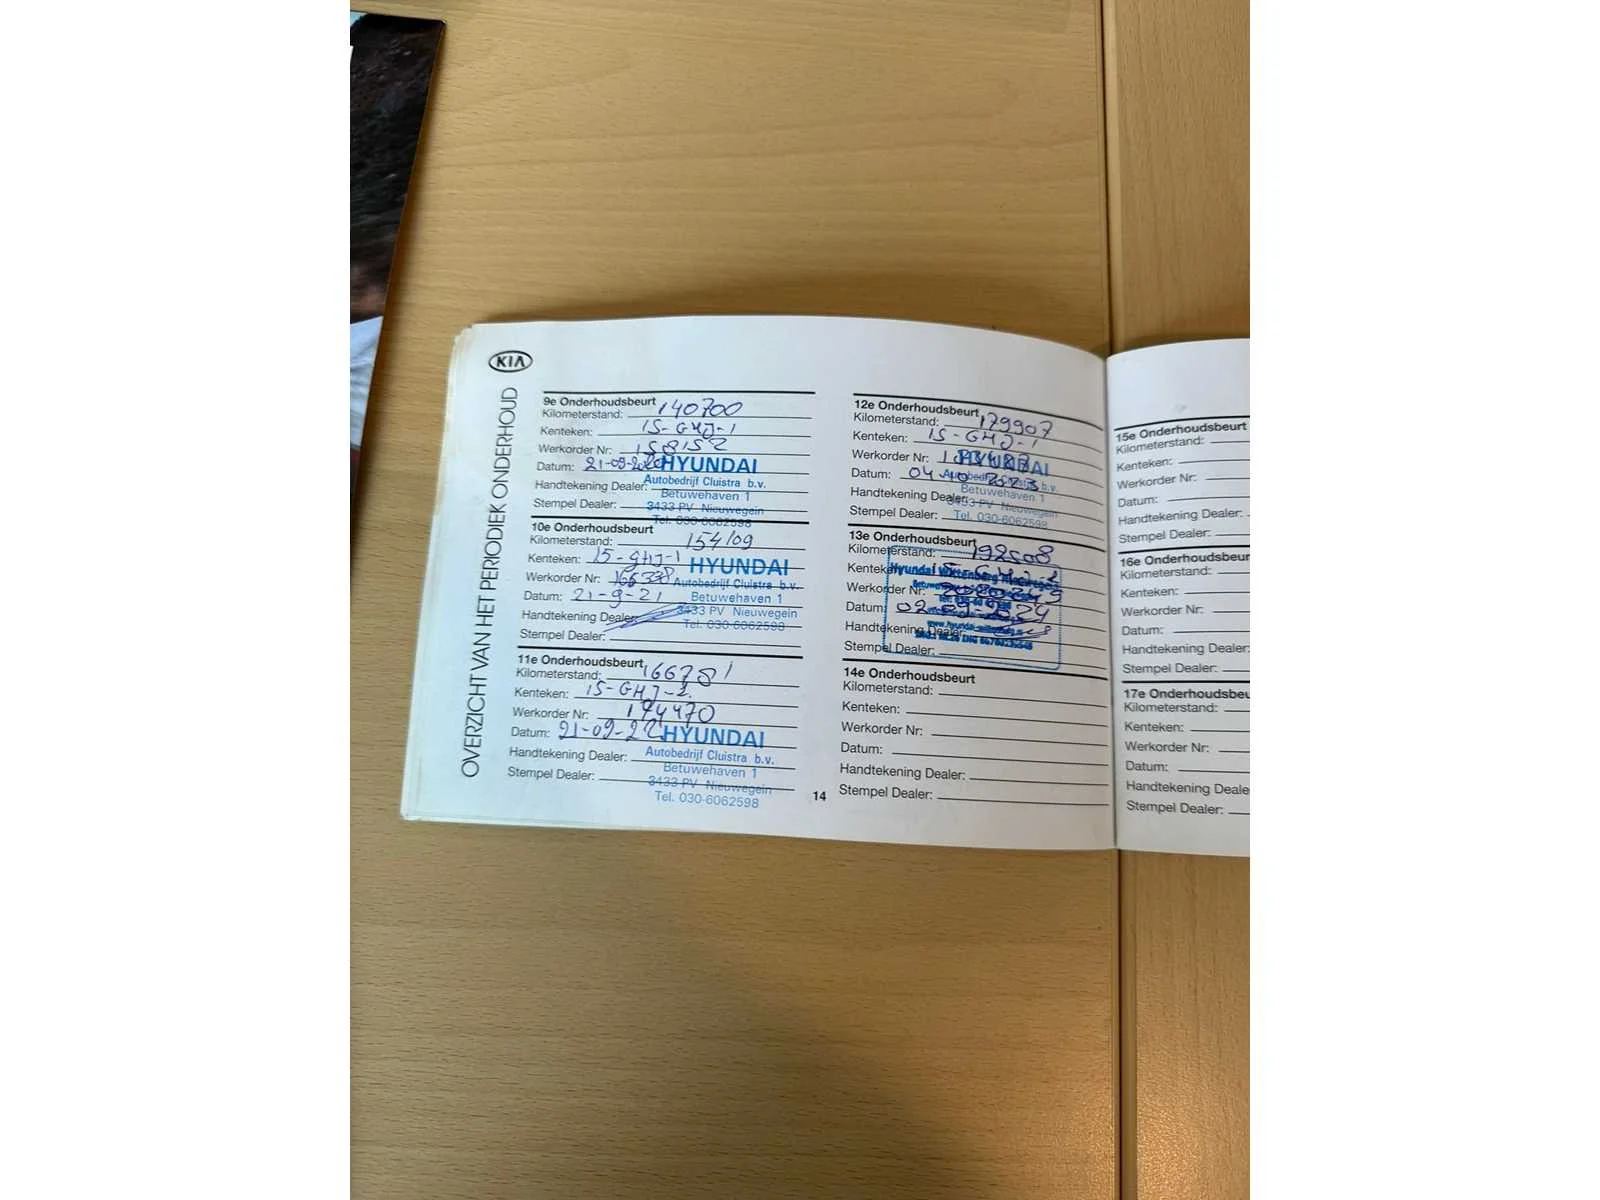 KIA
OVERZICHT VAN HET PERIODIEK ONDERHOUD
9e Onderhoudsbeurt
Kilometerstand: 140700
Kenteken: 15-GHJ-1
Werkorder Nr: 158152
Datum: 21-09-2020
HYUNDAI
Autobedrijf Cluistra b.v.
Handtekening Dealer:
Betuwehaven 1
Stempel Dealer:
3433 PV Nieuwegein
Tel. 030-6062598
10e Onderhoudsbeurt
Kilometerstand: 154109
Kenteken: 15-GHJ-1
HYUNDAI
Werkorder Nr:
Autobedrijf Cluistra b.v.
Datum: 21-9-21
Betuwehaven 1
Handtekening Dealer:
3433 PV Nieuwegein
Tel. 030-6062598
Stempel Dealer:
11e Onderhoudsbeurt
Kilometerstand: 166781
Kenteken: 15-GHJ-1
Werkorder Nr: 174470
Datum: 21-09-22
HYUNDAI
Autobedrijf Cluistra b.v.
Handtekening Dealer:
Betuwehaven 1
Stempel Dealer:
3433 PV Nieuwegein
Tel. 030-6062598
14
12e Onderhoudsbeurt
Kilometerstand: 179907
Kenteken: 15-GHJ-1
Werkorder Nr:
HYUNDAI
Datum: 04-10-2023
Autobedrijf Cluistra b.v.
Handtekening Dealer:
Betuwehaven 1
3433 PV Nieuwegein
Stempel Dealer:
Tel. 030-6062598
13e Onderhoudsbeurt
Kilometerstand: 192508
Kenteken: 15-GHJ-1
Hyundai Wittenberg Nieuwegein
Werkorder Nr:
Datum: 02-09-2024
Handtekening Dealer:
Stempel Dealer:
14e Onderhoudsbeurt
Kilometerstand:
Kenteken:
Werkorder Nr:
Datum:
Handtekening Dealer:
Stempel Dealer:
15e Onderhoudsbeurt
Kilometerstand:
Kenteken:
Werkorder Nr:
Datum:
Handtekening Dealer:
Stempel Dealer:
16e Onderhoudsbeur
Kilometerstand:
Kenteken:
Werkorder Nr:
Datum:
Handtekening Dealer:
Stempel Dealer:
17e Onderhoudsbeu
Kilometerstand:
Kenteken:
Werkorder Nr:
Datum:
Handtekening Deale
Stempel Dealer: